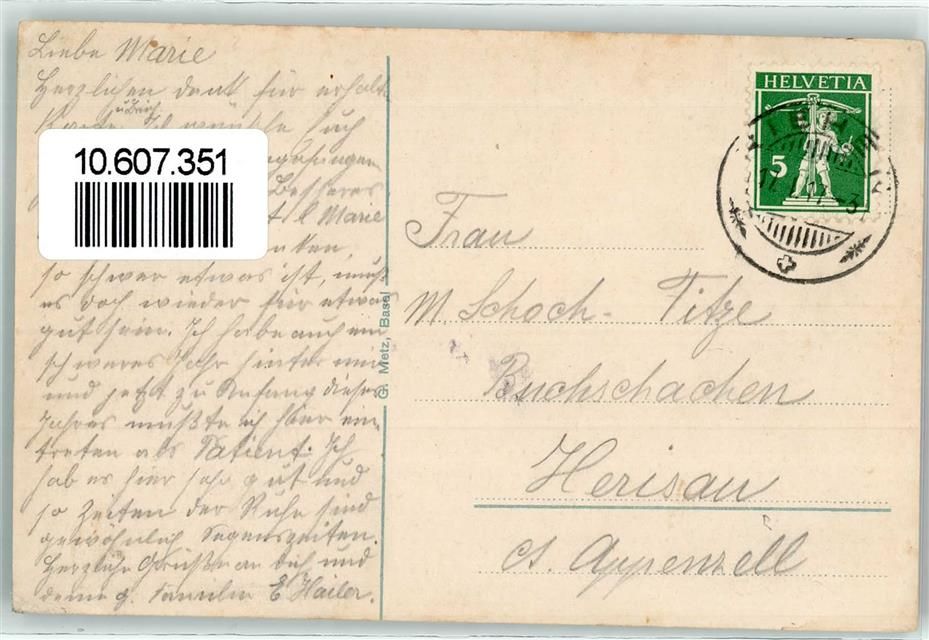 Liebe Marie
Herzlichen dank für erhalt.
Karte. Ich wünsche Euch
u. Brief
10.607.351
Besseres
l Marie
so schwer etwas ist, muß
es doch wieder für etwas
gut sein. Ich habe auch ein
schweres Jahr hinter mir
und jetzt zu Anfang dieses
Jahres mußte ich hier ein-
treten als Patient. Ich
hab es hier sehr gut und
so Zeiten der Ruhe sind
gewöhnlich Segenszeiten.
Herzliche Grüße an dich und
deine g. Familie E Hailer.
G. Metz, Basel
HELVETIA
5
Frau
M. Schoch-Titze
Buchschachen
Herisau
Ct. Appenzell